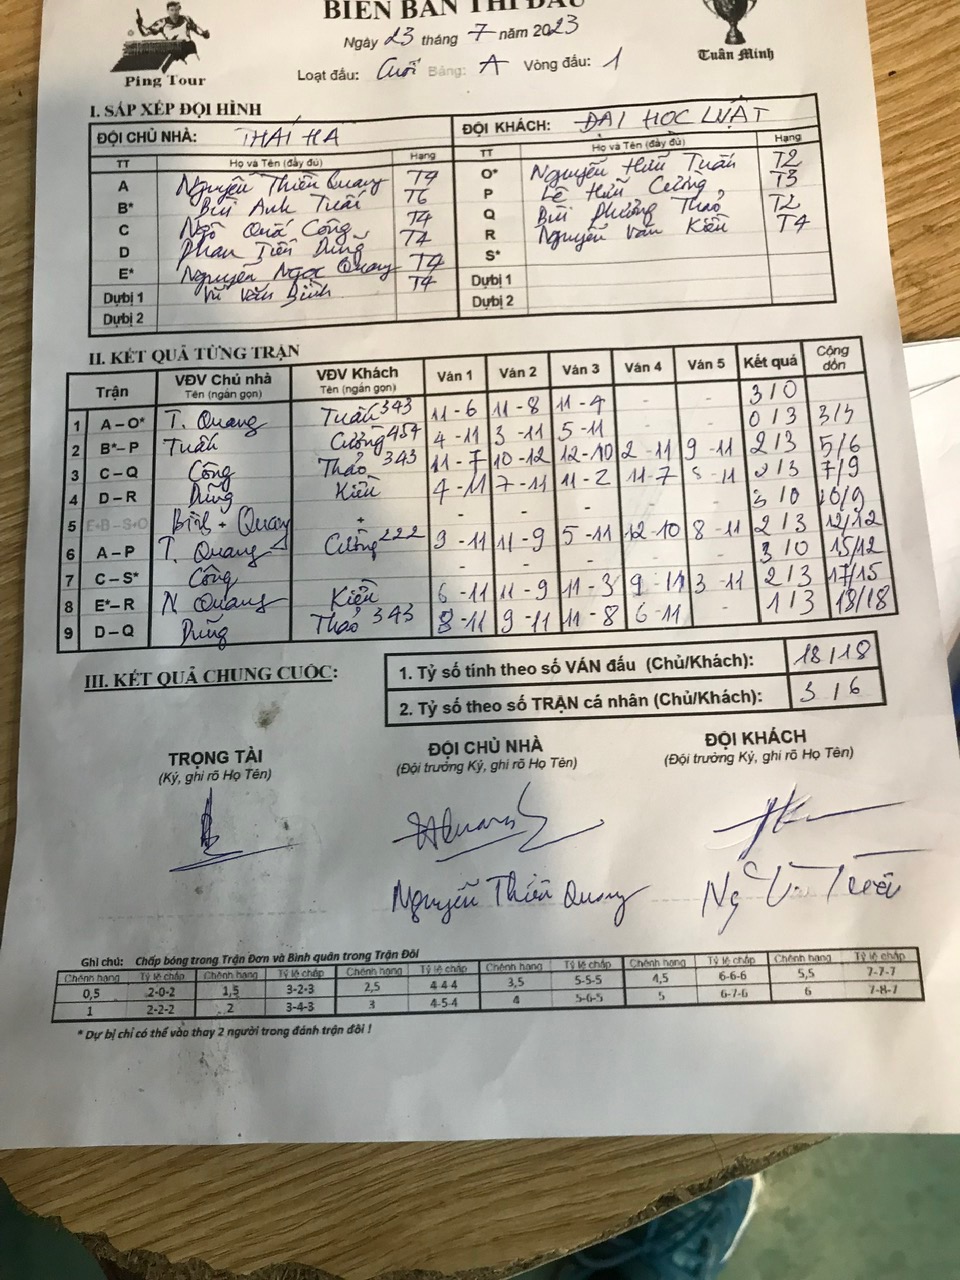 BIÊN BẢN THI ĐẤU
Ngày 23 tháng 7 năm 2023
Ping Tour
Tuấn Minh
Loạt đấu: Cuối Bảng: A Vòng đấu: 1
I. SẮP XẾP ĐỘI HÌNH
ĐỘI CHỦ NHÀ: THÁI HÀ ĐỘI KHÁCH: ĐẠI HỌC LUẬT
TT Họ và Tên (đầy đủ) Hạng TT Họ và Tên (đầy đủ) Hạng
A Nguyễn Thiên Quang T4 O* Nguyễn Hữu Tuấn T2
B* Bùi Anh Tuấn T6 P Lê Hữu Cường T3
C Ngô Quốc Công T4 Q Bùi Phương Thảo T2
D Phan Tiến Dũng T4 R Nguyễn Văn Kiền T4
E* Nguyễn Ngọc Quang T4 S*
Dự bị 1 Vũ Văn Bình T4 Dự bị 1
Dự bị 2 Dự bị 2
II. KẾT QUẢ TỪNG TRẬN
Trận VĐV Chủ nhà Tên (ngắn gọn) VĐV Khách Tên (ngắn gọn) Ván 1 Ván 2 Ván 3 Ván 4 Ván 5 Kết quả Cộng dồn
1 A – O* T. Quang Tuấn 343 11 - 6 11 - 8 11 - 4 - - 3 / 0
2 B* – P Tuấn Cường 454 4 - 11 3 - 11 5 - 11 - - 0 / 3 3/3
3 C – Q Công Thảo 343 11 - 7 10 - 12 12 - 10 2 - 11 9 - 11 2 / 3 5/6
4 D – R Dũng Kiền 4 - 11 7 - 11 11 - 2 11 - 7 - 11 2 / 3 7/9
5 E+B – S+O Bình + Quang + - - - - - 3 / 0 10/9
6 A – P T. Quang Cường 222 3 - 11 11 - 9 5 - 11 12 - 10 8 - 11 2 / 3 12/12
7 C – S* Công - - - - - 3 / 0 15/12
8 E* – R N Quang Kiền 6 - 11 11 - 9 11 - 3 9 - 11 3 - 11 2 / 3 17/15
9 D – Q Dũng Thảo 343 8 - 11 9 - 11 11 - 8 6 - 11 - 1 / 3 18/18
III. KẾT QUẢ CHUNG CUỘC:
1. Tỷ số tính theo số VÁN đấu (Chủ/Khách): 18 / 18
2. Tỷ số theo số TRẬN cá nhân (Chủ/Khách): 3 / 6
TRỌNG TÀI ĐỘI CHỦ NHÀ ĐỘI KHÁCH
(Ký, ghi rõ Họ Tên) (Đội trưởng Ký, ghi rõ Họ Tên) (Đội trưởng Ký, ghi rõ Họ Tên)
Nguyễn Thiên Quang
Ghi chú: Chấp bóng trong Trận Đơn và Bình quân trong Trận Đôi
Chênh hạng Tỷ lệ chấp Chênh hạng Tỷ lệ chấp Chênh hạng Tỷ lệ chấp Chênh hạng Tỷ lệ chấp Chênh hạng Tỷ lệ chấp Chênh hạng Tỷ lệ chấp
0,5 2-0-2 1,5 3-2-3 2,5 4-4-4 3,5 5-5-5 4,5 6-6-6 5,5 7-7-7
1 2-2-2 2 3-4-3 3 4-5-4 4 5-6-5 5 6-7-6 6 7-8-7
* Dự bị chỉ có thể vào thay 2 người trong đánh trận đôi !